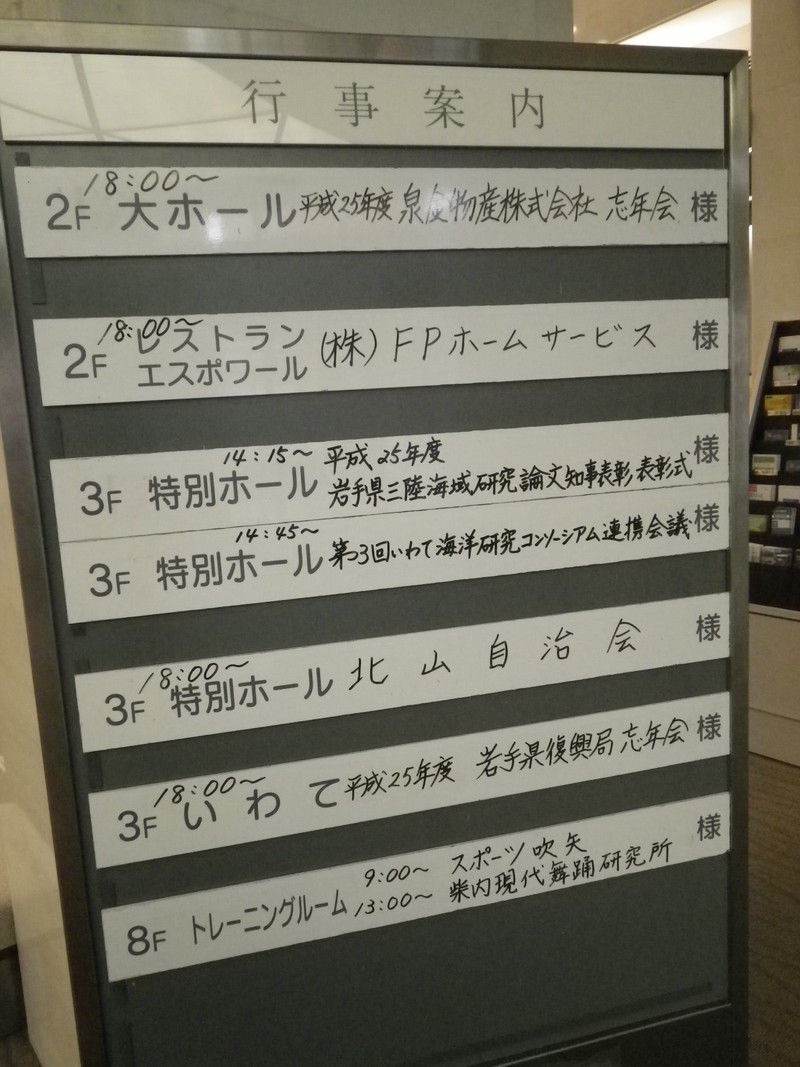 行事案内
18:00〜
2F 大ホール 平成25年度 泉金物産株式会社 志年会 様
18:00〜
2F レストラン エスポワール (株)FPホームサービス 様
14:15〜 平成25年度
3F 特別ホール 岩手県三陸海域研究論文知事表彰表彰式 様
14:45〜
3F 特別ホール 第3回いわて海洋研究コンソーシアム連携会議 様
18:00〜
3F 特別ホール 北山自治会 様
18:00〜
3F いわて 平成25年度 岩手県復興局 志年会 様
9:00〜 スポーツ吹矢
8F トレーニングルーム 13:00〜 柴内現代舞踊研究所 様